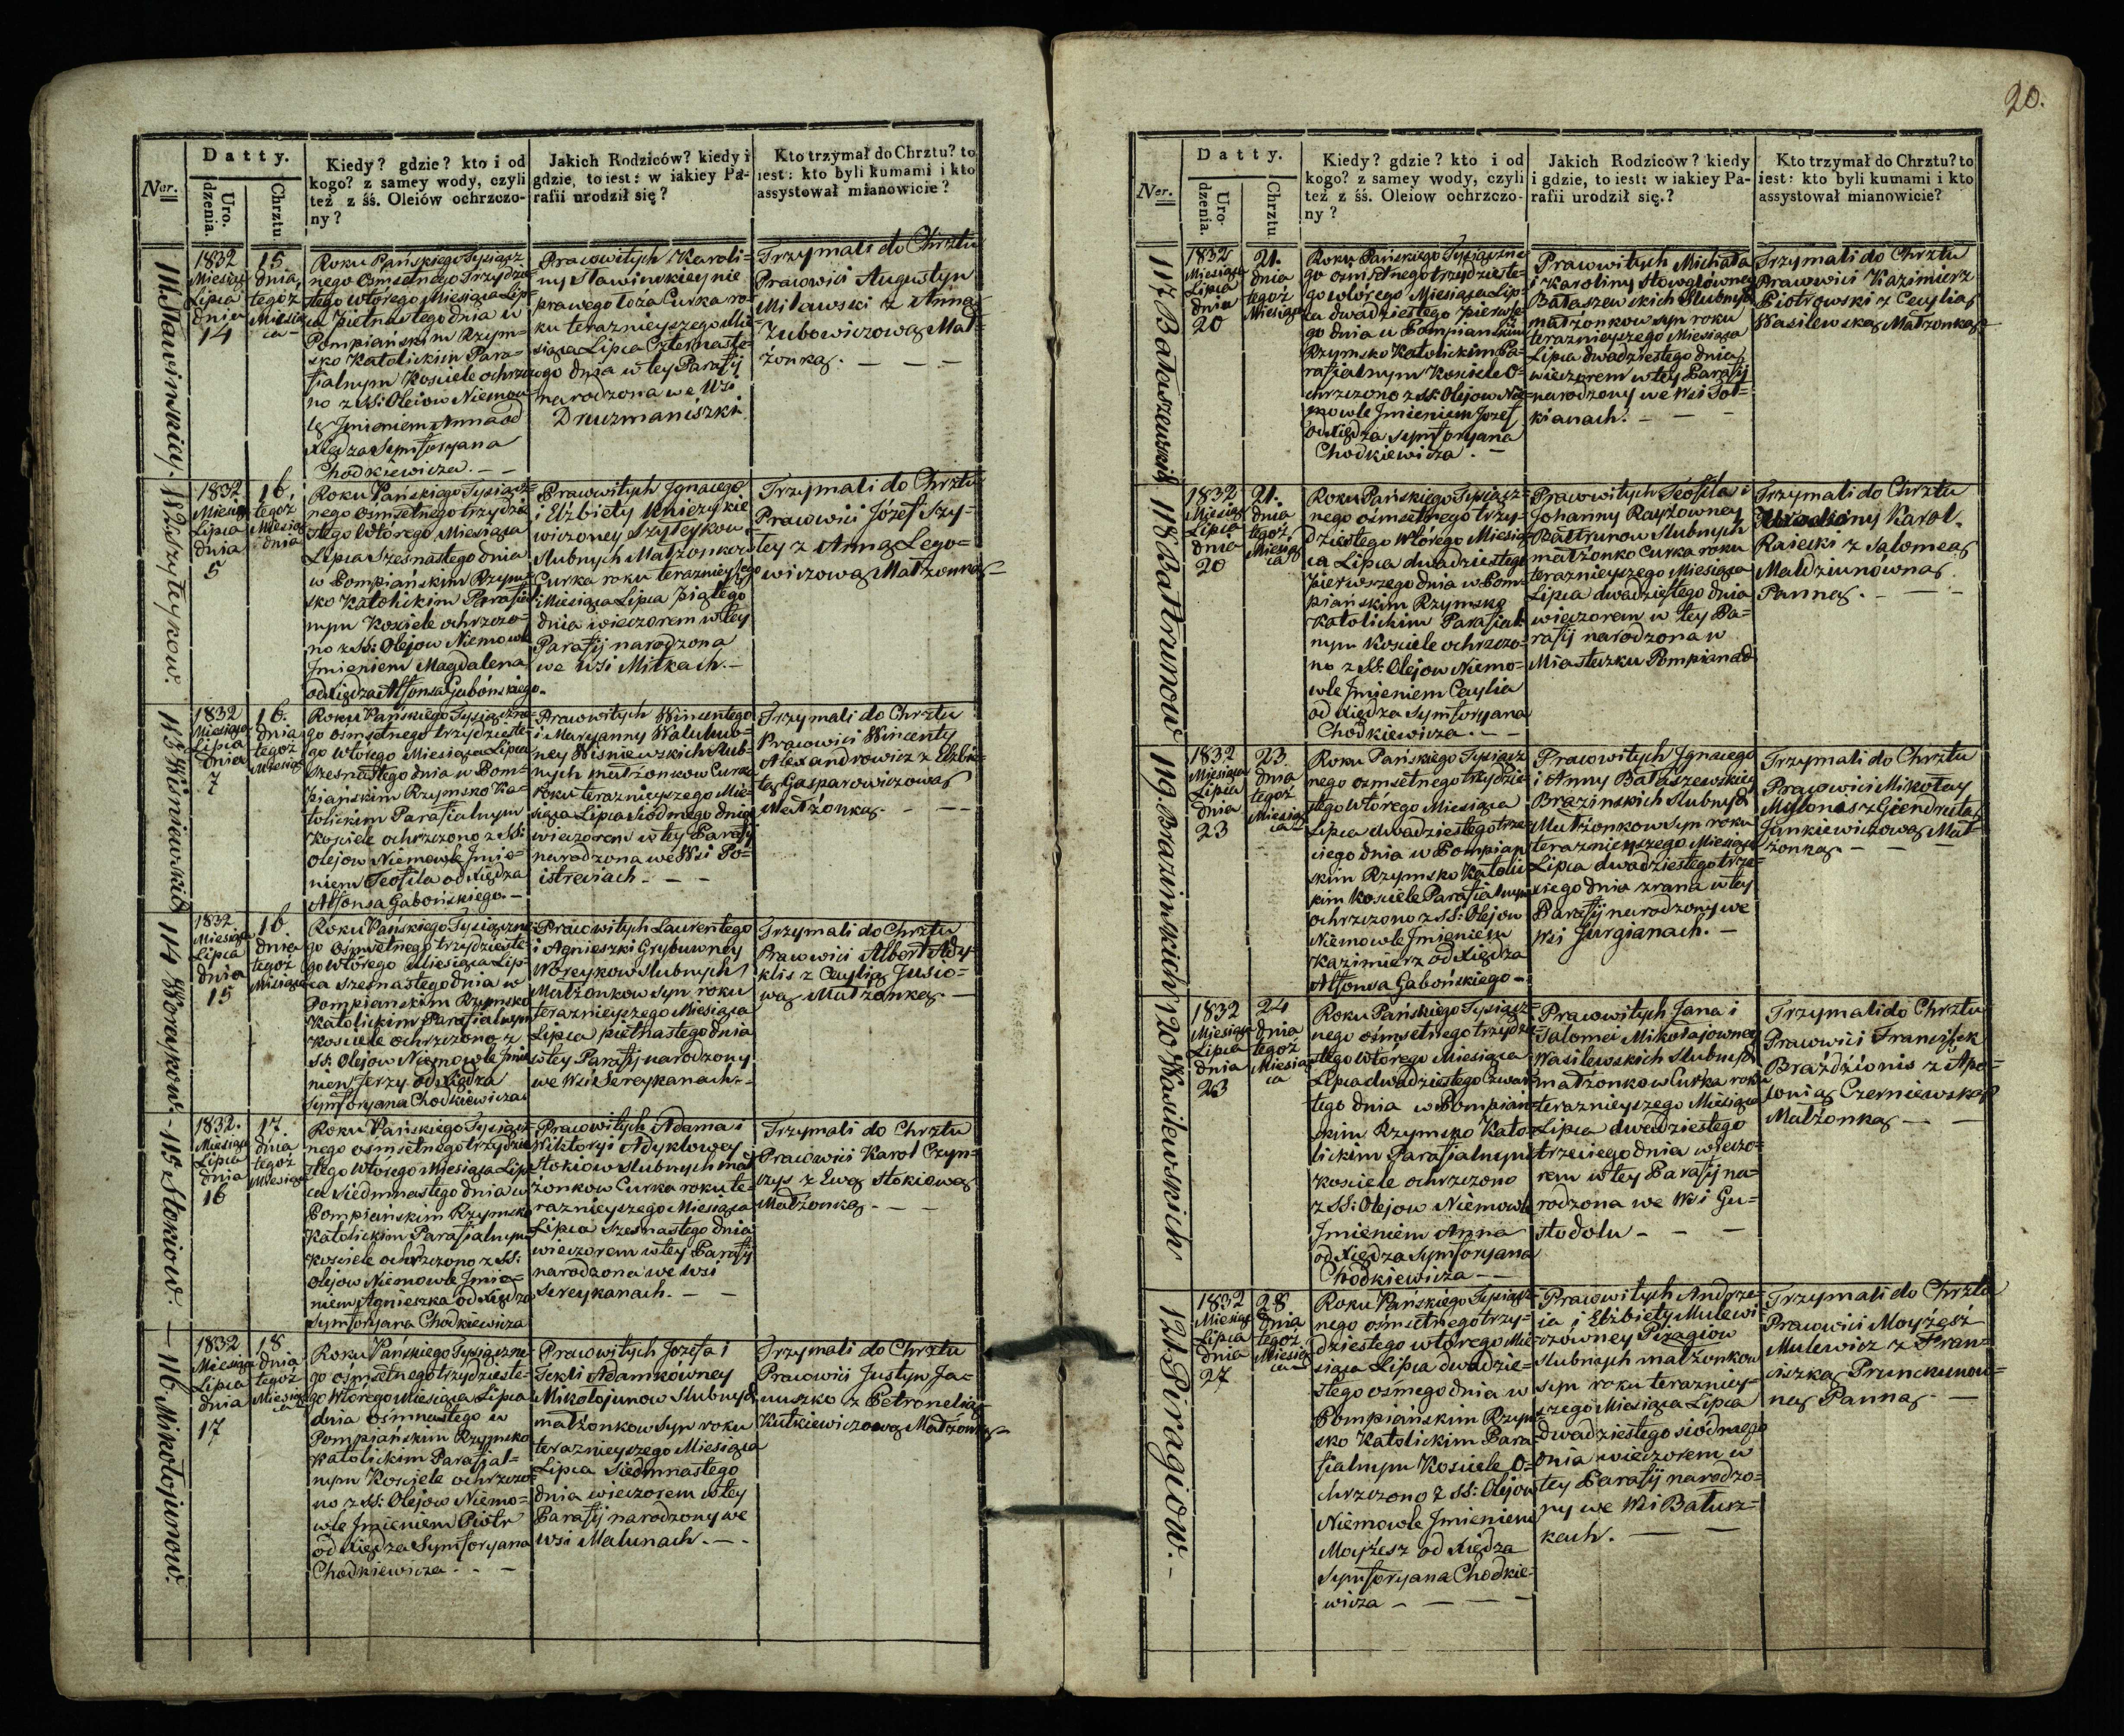 20.
Datty.
Ner.
Uro-
dzenia.
Chrztu
Kiedy? gdzie? kto i od
kogo? z samey wody, czyli
też z śś. Oleiów ochrzczo-
ny?
Jakich Rodziców? kiedy i
gdzie, to iest: w iakiey Pa-
rafii urodził się?
Kto trzymał do Chrztu? to
iest: kto byli kumami i kto
assystował mianowicie?
111 Sławinskiey.
1832
Miesiąca
Lipca
dnia
14
15
dnia
tegoż
Miesią-
ca
Roku Pańskiego Tysiącz
nego Osmsetnego Trzydzie-
stego wtórego Miesiąca Lip-
ca piętnastego dnia w
Pompianskim Rzym-
sko Katolickim Para-
fialnym Kosciele ochrzczo
no z SS: Olejow Niemow-
lę Imieniem Anna od
Xiędza Symforyana
Chodkiewicza.
Pracowitych Karoli-
ny Sławinskiey nie
prawego łoża Curka ro-
ku teraznieyszego Mie-
siąca Lipca Czternaste-
go dnia w tey Parafij
narodzona we Wsi
Druzmaniszki
Trzymali do Chrztu
Pracowici Augustyn
Milawski z Anną
Zubowiczową Mał-
żonką.
112 Szyłeykow.
1832
Miesią
Lipca
dnia
5
16.
tegoż
Miesią
dnia
Roku Pańskiego Tysiącz-
nego osmsetnego trzydzie
stego Wtórego Miesiąca
Lipca Szesnastego dnia
w Pompiańskim Rzym-
sko Katolickim Parafial
nym Kosciele ochrzczo-
no z SS: Olejow Niemowle
Imieniem Magdalena
od Xiędza Alfonsa Gabońskiego.
Pracowitych Ignacego
i Elżbiety Kniezykie
wiczowney Szyłeykow
slubnych Małżonkow
Curka roku teraznieyszego
Miesiąca Lipca piątego
dnia wieczorem w tey
Parafij narodzona
we Wsi Mitkach.
Trzymali do Chrztu
Pracowici Józef Szy-
łey z Anną Lego-
wiczową Małżonką
113 Wiśniewskich
1832
Miesiąca
Lipca
dnia
7
16.
dnia
tegoż
Miesiąca
Roku Pańskiego Tysiączne-
go osmsetnego trzydzieste-
go wtórego Miesiąca Lipca
szesnastego dnia w Pom-
piańskim Rzymsko Ka-
tolickim Parafialnym
Kosciele ochrzczono z SS:
Olejow Niemowle Imie-
niem Teofila od Xiędza
Alfonsa Gabońskiego.
Pracowitych Wincentego
i Maryanny Waluko-
ney Wiśniewskich slub-
nych małżonkow Curka
roku teraznieyszego Mie-
siąca Lipca siódmego dnia
wieczorem w tey Parafij
narodzona we Wsi Po-
istreciach
Trzymali do Chrztu
Pracowici Wincenty
Alexandrowicz z Elżbie-
tą Gasparowiczową
Małżonką.
114 Noreykow
1832
Miesiąca
Lipca
dnia
15
16.
dnia
tegoż
Miesiąca
Roku Pańskiego Tysiączne-
go osmsetnego trzydzieste-
go wtórego Miesiąca Lip-
ca szesnastego dnia w
Pompianskim Rzymsko
Katolickim Parafialnym
Kosciele ochrzczono z
SS: Olejow Niemowle Imie
niem Jerzy od Xiędza
Symforyana Chodkiewicza
Pracowitych Laurentego
i Agnieszki Grybuwney
Noreykow slubnych
Małżonkow syn roku
teraznieyszego Miesiąca
Lipca piętnastego dnia
w tey Parafij narodzony
we Wsi Sereykanach.
Trzymali do Chrztu
Pracowici Albert Ady-
klis z Cecylią Jusio-
wą Małżonką.
115 Stokiow.
1832.
Miesiąca
Lipca
dnia
16
17.
dnia
tegoż
Miesiąca
Roku Pańskiego Tysiącz-
nego osmsetnego trzydzie
stego Wtórego Miesiąca Lip-
ca Siedmnastego dnia w
Pompiańskim Rzymsko
Katolickim Parafialnym
Kosciele ochrzczono z SS:
Olejow Niemowle Imie-
niem Agnieszka od Xiędza
Symforyana Chodkiewicza
Pracowitych Adama i
Wiktoryi Adyklowey
Stokiow slubnych mał
żonkow Curka roku te-
raznieyszego Miesiąca
Lipca szesnastego dnia
wieczorem w tey Parafij
narodzona we Wsi
Sereykanach.
Trzymali do Chrztu
Pracowici Karol Czyn-
czys z Ewą Stokiową
Małżonką.
116 Mikołojunow.
1832
Miesiąca
Lipca
dnia
17
18
dnia
tegoż
Miesiąca
Roku Pańskiego Tysiączne
go ośmsetnego trzydzieste-
go Wtórego Miesiąca Lipca
dnia ośmnastego w
Pompiańskim Rzymsko
Katolickim Parafial-
nym Kosciele ochrzczo-
no z SS: Olejow Niemo-
wle Imieniem Piotr
od Xiędza Symforyana
Chodkiewicza.
Pracowitych Jozefa i
Tekli Adamkówney
Mikołojunow slubnych
małżonkow syn roku
teraznieyszego Miesiąca
Lipca Siedmnastego
dnia wieczorem w tey
Parafij narodzony we
Wsi Malunach.
Trzymali do Chrztu
Pracowici Justyn Ja-
nuszko z Petronelią
Kutkiewiczową Małżonką
Datty.
Ner.
Uro-
dzenia.
Chrztu
Kiedy? gdzie? kto i od
kogo? z samey wody, czyli
też z śś. Oleiow ochrzczo-
ny?
Jakich Rodzicow? kiedy
i gdzie, to iest: w iakiey Pa-
rafii urodził się.?
Kto trzymał do Chrztu? to
iest: kto byli kumami i kto
assystował mianowicie?
117 Bałaszewskich
1832
Miesiąca
Lipca
dnia
20
21.
dnia
tegoż
Miesiąca
Roku Pańskiego Tysiączne
go osmsetnego trzydzieste-
go wtórego Miesiąca Lip-
ca dwadziestego pierwsze-
go dnia w Pompianskim
Rzymsko Katolickim Pa-
rafialnym Kosciele o-
chrzczono z SS: Olejow Nie-
mowle Imieniem Jozef
od Xiędza Symforyana
Chodkiewicza.
Pracowitych Michała
i Karoliny Stowgłówney
Bałaszewskich slubnych
małżonkow syn roku
teraznieyszego Miesiąca
Lipca dwadziestego dnia
wieczorem w tey Parafij
narodzony we Wsi Toł-
kianach.
Trzymali do Chrztu
Pracowici Kazimierz
Piotrowski z Cecylią
Wasilewską Małżonką
118 Bałtrunow
1832
Miesiąca
Lipca
dnia
20
21.
dnia
tegoż
Miesią
ca
Roku Pańskiego Tysiącz-
nego ośmsetnego trzy-
dziestego Wtórego Miesią
ca Lipca dwadziestego
pierwszego dnia w Pom-
piańskim Rzymsko
Katolickim Parafial
nym Kosciele ochrzczo-
no z SS: Olejow Niemo-
wle Imieniem Cecylia
od Xiędza Symforyana
Chodkiewicza.
Pracowitych Teofila i
Johanny Rayżowney
Bałtrunow slubnych
małżonko Curka roku
teraznieyszego Miesiąca
Lipca dwadziestego dnia
wieczorem w tey Pa-
rafij narodzona w
Miasteczku Pompianach
Trzymali do Chrztu
Karol
Raiecki z Salomeą
Małdziunowną
Panną.
119. Brazinskich
1832
Miesiąca
Lipca
dnia
23
23.
dnia
tegoż
Miesią
ca
Roku Pańskiego Tysiącz
nego osmsetnego trzydzie
stego Wtórego Miesiąca
Lipca dwadziestego trze-
ciego dnia w Pompian
skim Rzymsko Katolic
kim Kosciele Parafialnym
ochrzczono z SS: Olejow
Niemowle Imieniem
Kazimierz od Xiędza
Alfonsa Gabońskiego
Pracowitych Ignacego
i Anny Bałaszewskiey
Brazinskich slubnych
Małżonkow syn roku
teraznieyszego Miesiąca
Lipca dwadziestego trze-
ciego dnia zrana w tey
Parafij narodzony we
Wsi Jurgianach.
Trzymali do Chrztu
Pracowici Mikołay
Mylonas z Giendrutą
Jankiewiczową Mał-
żonką.
120 Wasilewskich
1832
Miesiąca
Lipca
dnia
23
24
dnia
tegoż
Miesią
ca
Roku Pańskiego Tysiącz-
nego ośmsetnego trzydzie
stego wtórego Miesiąca
Lipca dwadziestego czwar-
tego dnia w Pompian-
skim Rzymsko Kato-
lickim Parafialnym
Kosciele ochrzczono
z SS: Olejow Niemowle
Imieniem Anna
od Xiędza Symforyana
Chodkiewicza
Pracowitych Jana i
Salomei Mikołajowney
Wasilewskich slubnych
małżonkow Curka roku
teraznieyszego Miesiąca
Lipca dwadziestego
trzeciego dnia wieczo-
rem w tey Parafij na-
rodzona we Wsi Gu-
stodolu
Trzymali do Chrztu
Pracowici Franciszek
Braźdźionis z Apo-
lonią Czerniewską
Małżonką
121 Piragiow.
1832
Miesiąca
Lipca
dnia
27
28
dnia
tegoż
Miesią
ca
Roku Pańskiego Tysiącz-
nego osmsetnego trzy-
dziestego wtórego Mie-
siąca Lipca dwadzie-
stego ośmego dnia w
Pompiańskim Rzym-
sko Katolickim Para-
fialnym Kosciele o-
chrzczono z SS: Olejow
Niemowle Imieniem
Moyżesz od Xiędza
Symforyana Chodkie-
wicza
Pracowitych Andrze-
ia i Elżbiety Mulewi
czowney Piragiow
slubnych małżonkow
syn roku terazniey-
szego Miesiąca Lipca
dwadziestego siódmego
dnia wieczorem w
tey Parafij narodzo-
ny we Wsi Batusz-
kach.
Trzymali do Chrztu
Pracowici Moyżesz
Mulewicz z Fran-
ciszką Prunckunow-
ną Panną.